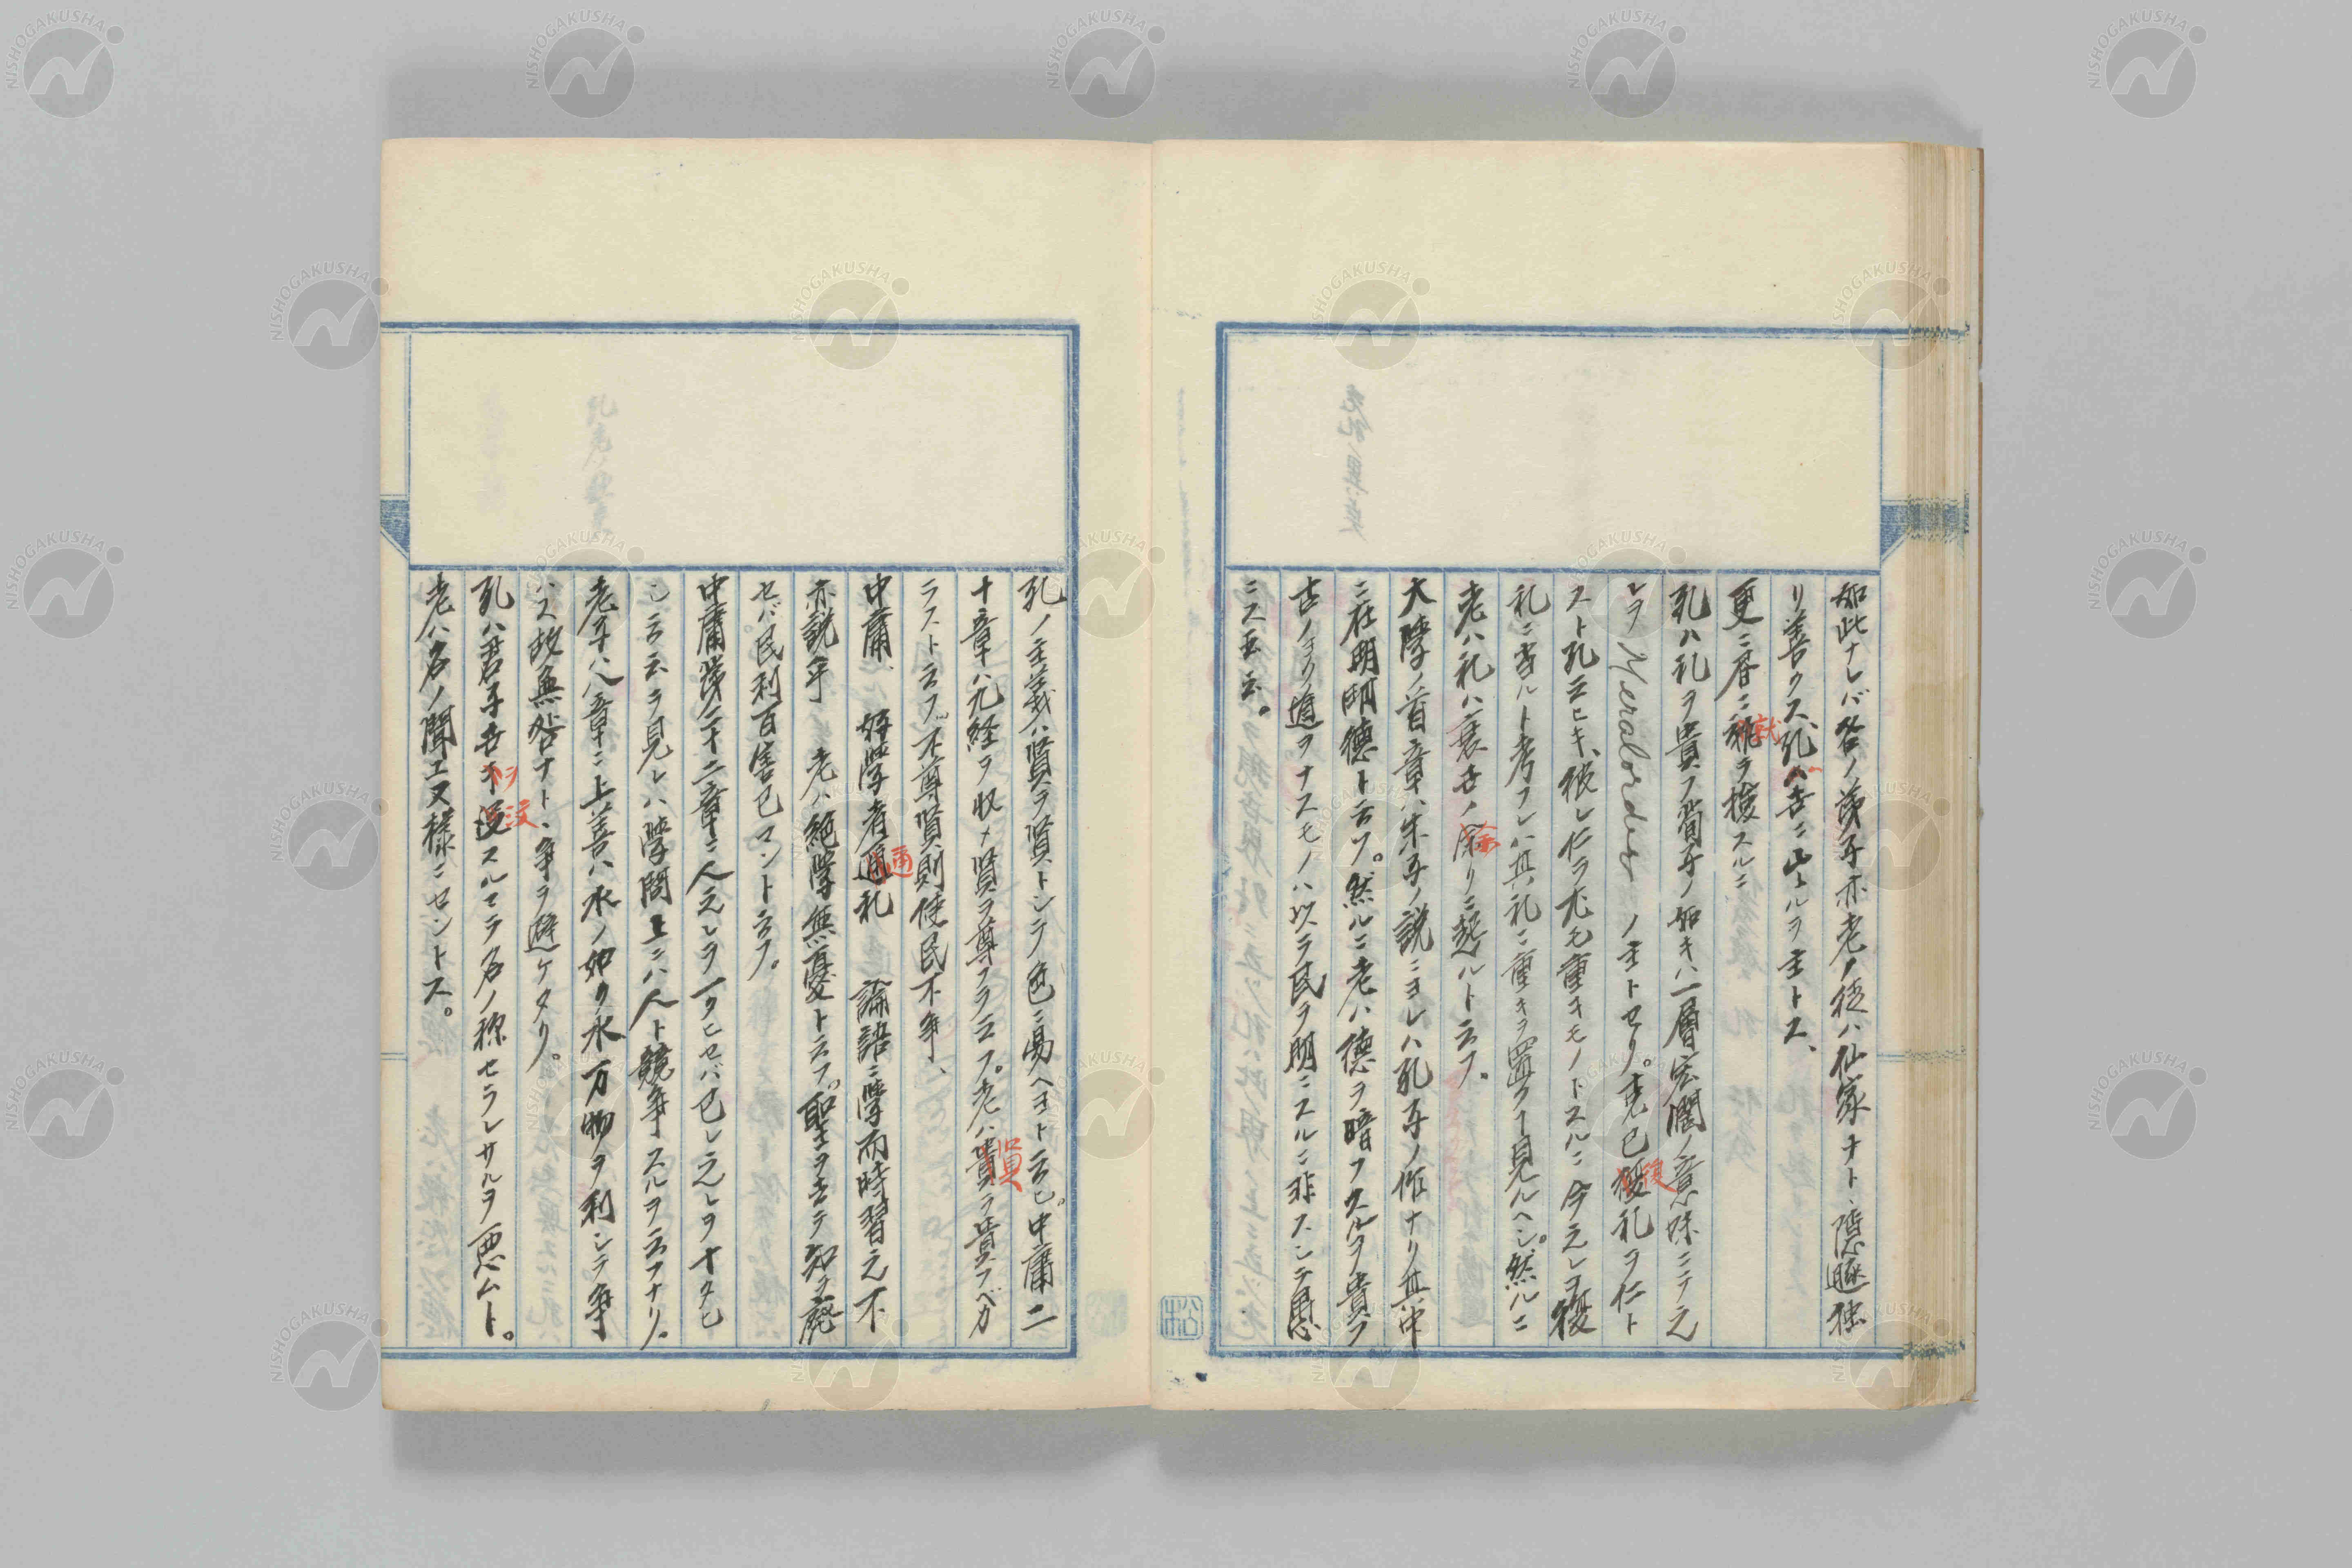 如此ナレバ各ノ弟子亦老ノ徒ハ仙家ナト、隠遯独
リ善クス、孔ハ吉ニ止ルヲ主トス、
更ニ各ニ就ラ挍スルニ
就
孔ハ礼ヲ貴フ荀子ノ如キハ一層宏闊ノ意味ニテ之
レヲ Meralorder ノ主トセリ。克己復礼ヲ仁ト
復
スト孔云ヒキ、彼レ仁ヲ尤モ重キモノトスルニ今之レヲ復
礼ニ当ルト考フレハ其礼ニ重キヲ置クヿ見ルヘシ。然ルニ
老ハ礼ハ衰世ノ余リニ起ルト云フ。
大学ノ首章ハ朱子ノ説ニヨレハ孔子ノ作ナリ其中
ニ在明明徳ト云フ。然ルニ老ハ徳ヲ暗フスルヲ貴フ
古ノヨク道ヲナスモノハ以テ民ヲ明ニスルニ非スシテ愚
ニス云云。
孔ノ主義ハ賢ヲ賢トシテ色ニ易ヘヨト云ヒ。中庸二
十章ハ九経ヲ収メ賢ヲ尊フヲ云フ。老ハ貨ヲ貴フベカ
貨
ラストコフ、不尊賢則使民不争、
中庸、 好学者通礼 論語ニ学而時習之不
通
亦説乎 老ハ絶学無憂ト云フ、聖ヲ去テ知ヲ廃
セバ民利百倍已マント云フ。
中庸第二十二章ニ人之レヲ一タヒセバ己レ之レヲ十タヒ
シ云云ヲ見レハ学問上ニハ人ト競争スルヲ云フナリ。
老子ハ八章ニ上善ハ水ノ如ク水万物ヲ利シテ争
ハス故無咎ナト、争ヲ避ケタリ。
孔ハ君子世ヲ没スルマテ名ノ称セラレサルヲ悪ムト。
ヲ没
老ハ名ノ聞エヌ様ニセントス。
松
NISHOGAKUSHA